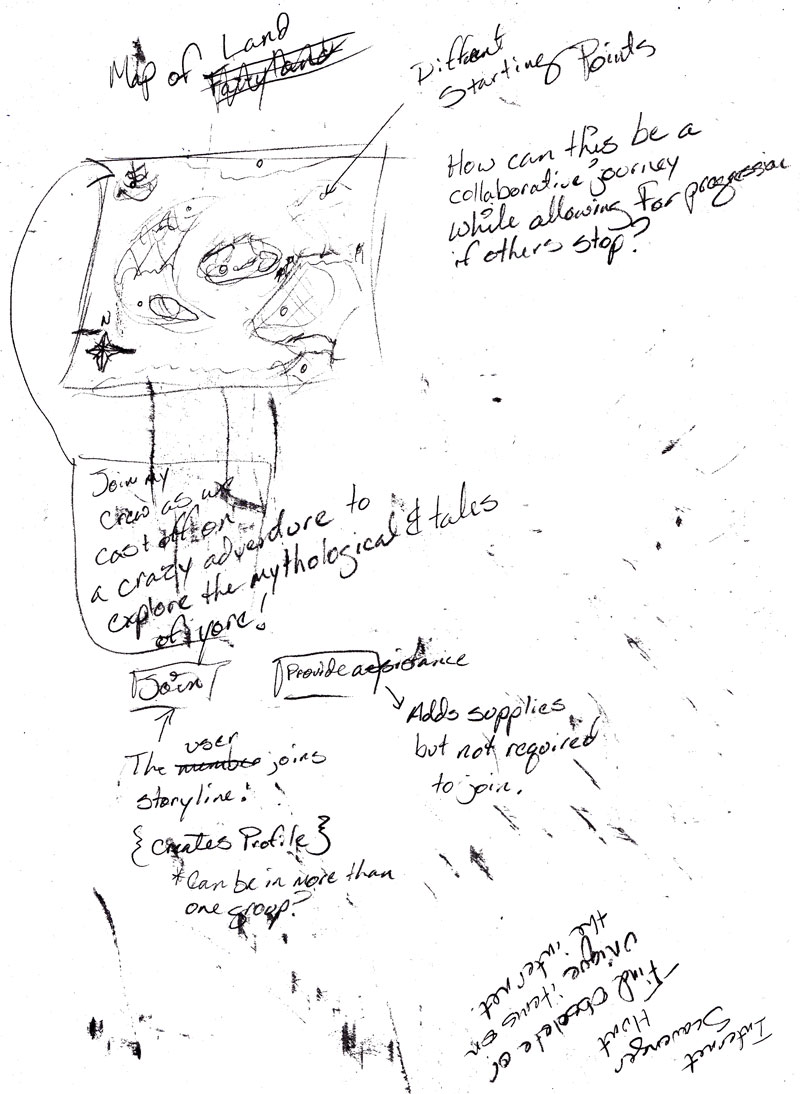 Map of Land
Fairyland
Different
Starting Points
How can this be a
collaborative journey
while allowing for progression
if others stop?
N
Join my
crew as we
cast off on
a crazy adventure to
explore the mythological & tales
of yore!
Join
Provide assistance
Adds supplies
but not required
to join.
user
The member joins
storyline!
{creates Profile}
*Can be in more than
one group?
Internet
Scavenger
Hunt
Find obsolete or
unique items on
the internet.